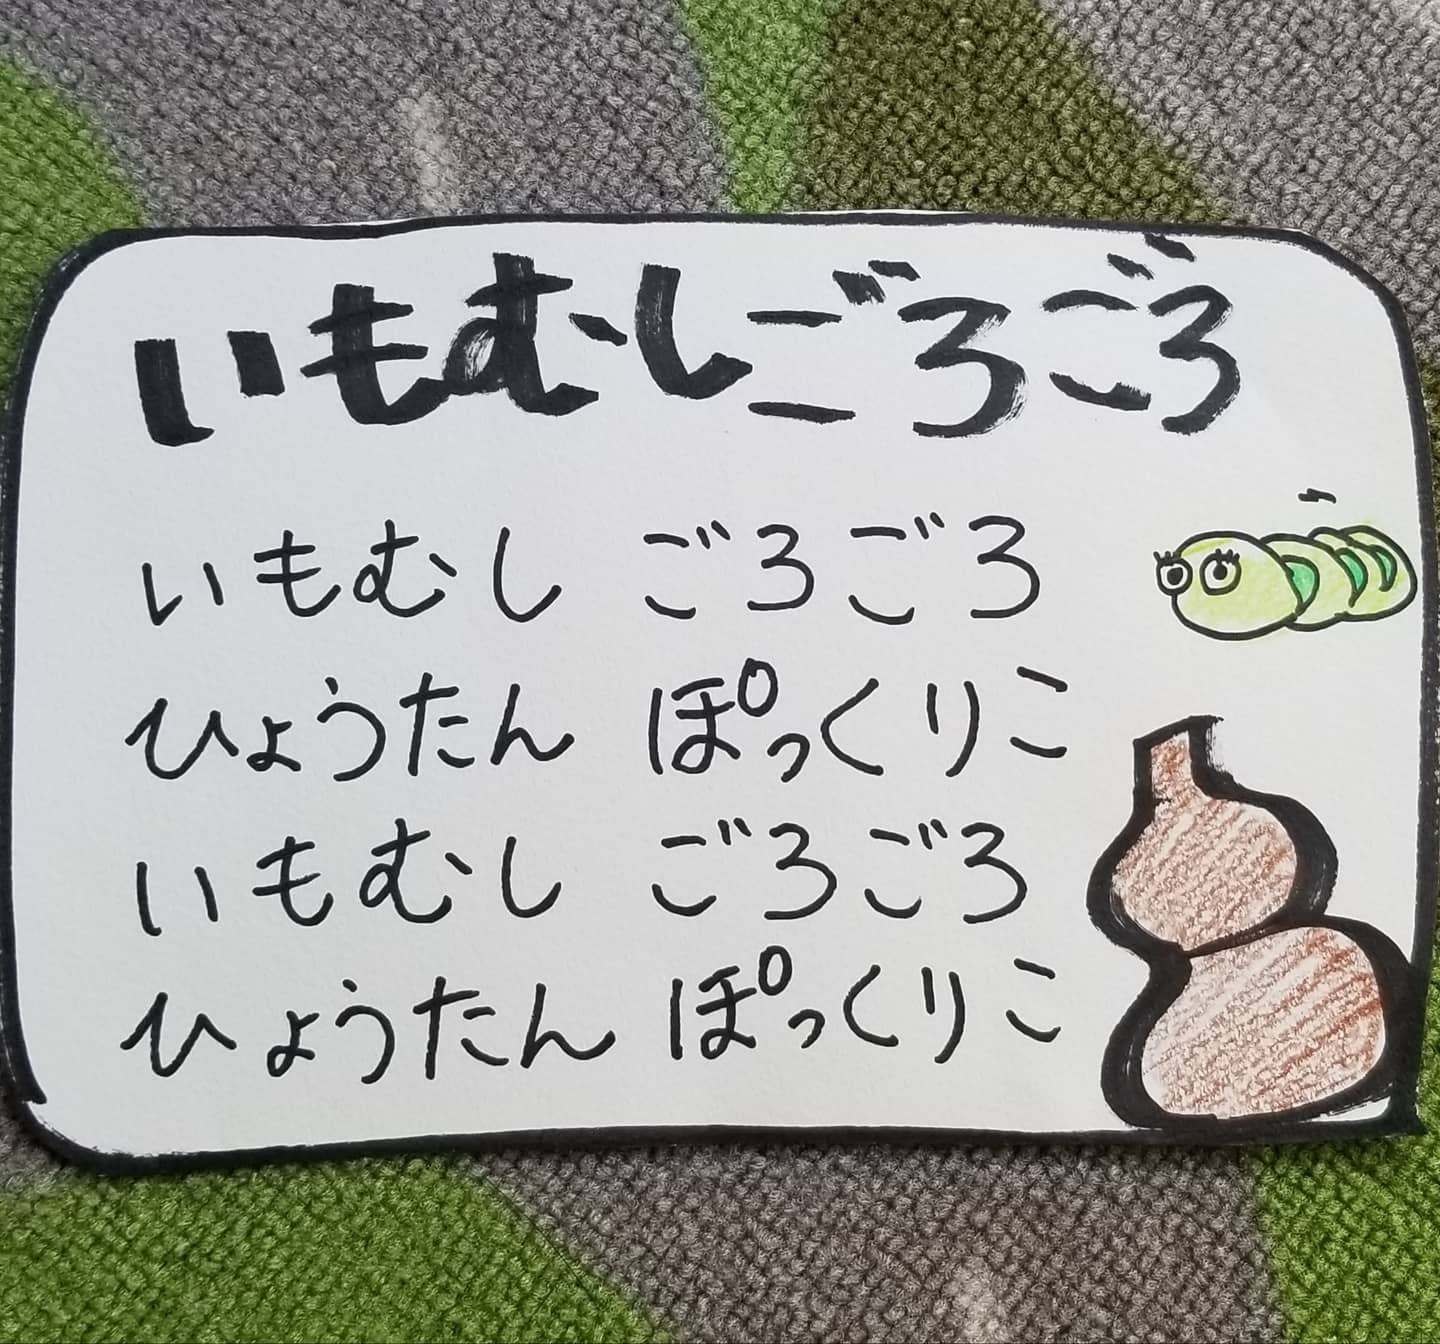 いもむしごろごろ
いもむし ごろごろ
ひょうたん ぽっくりこ
いもむし ごろごろ
ひょうたん ぽっくりこ